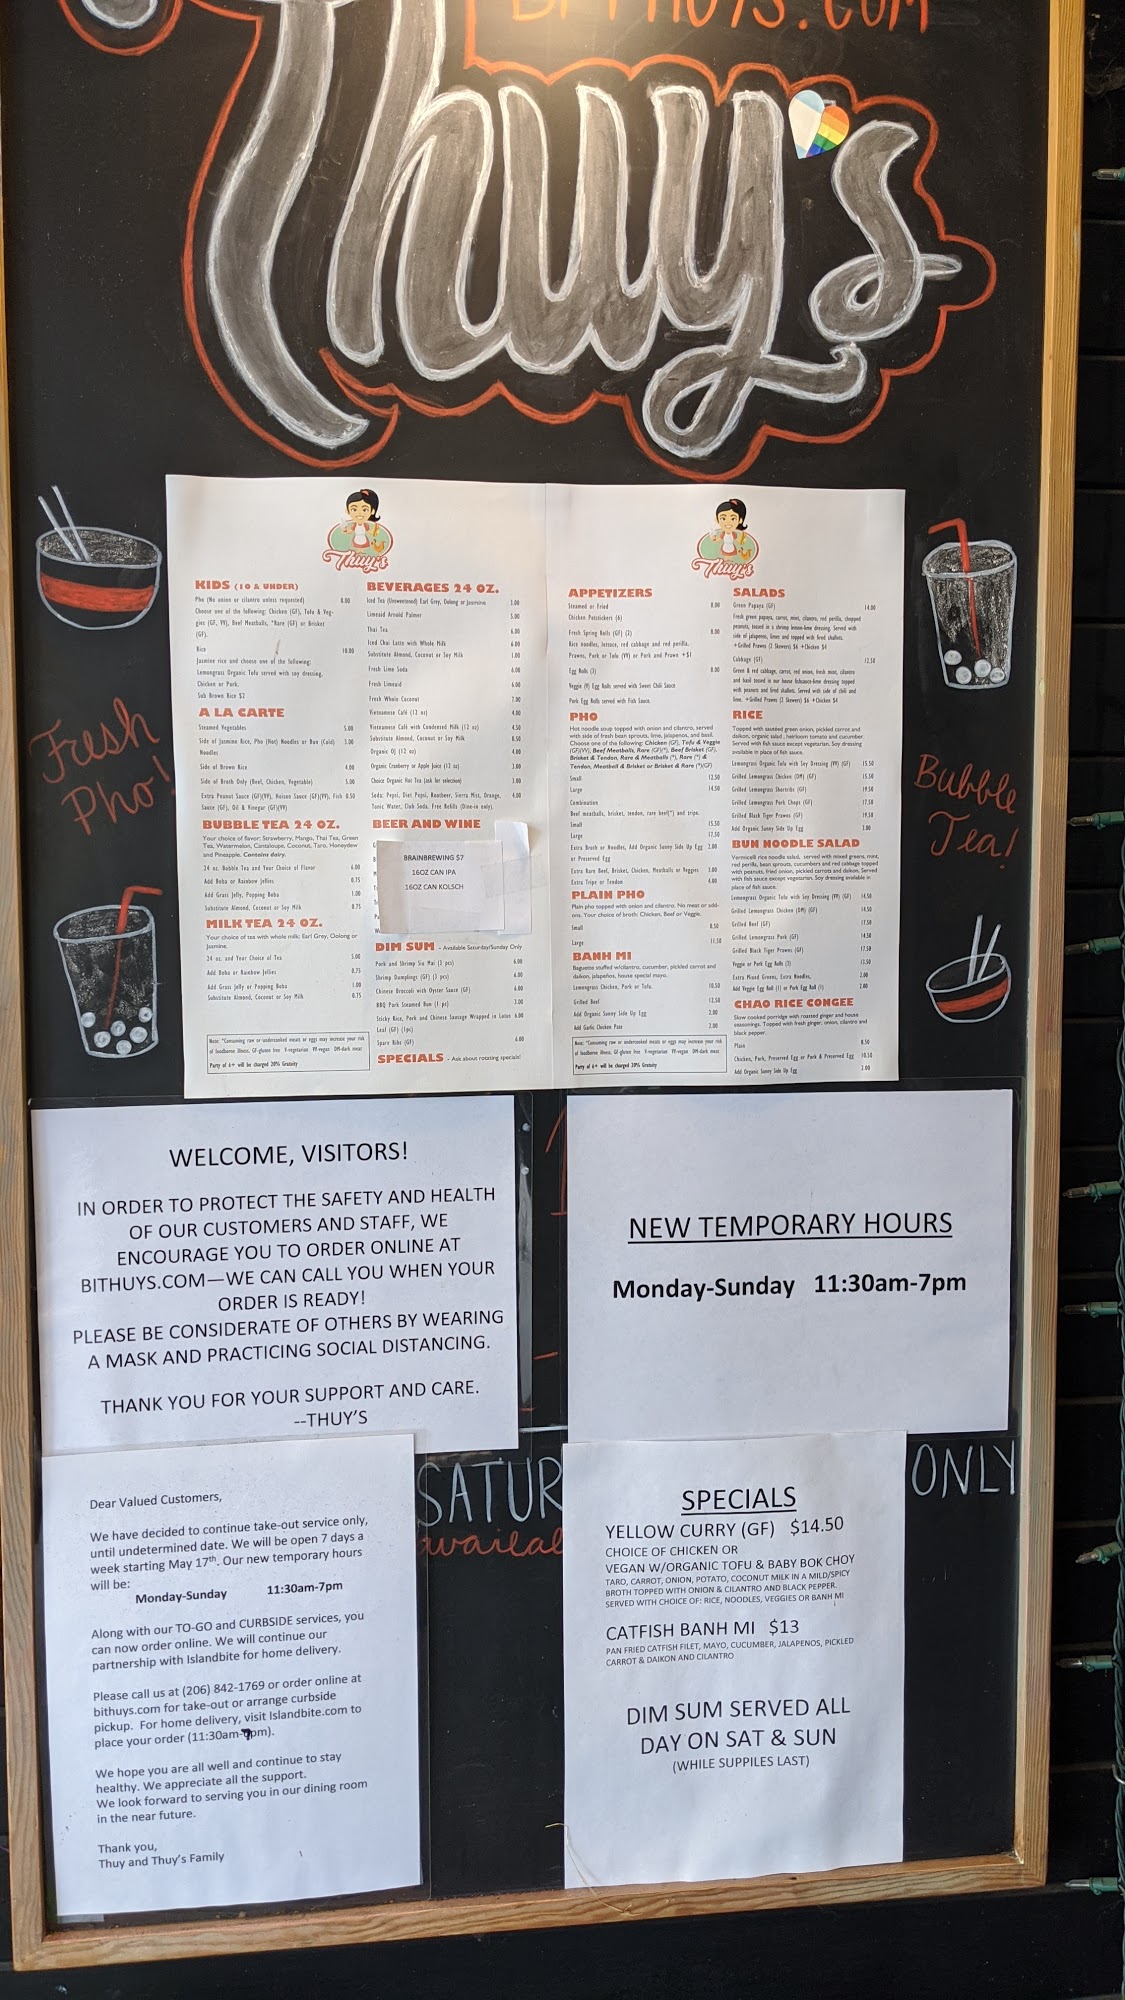 BITHUYS.COM
Thuy's
Fresh
Pho!
Bubble
Tea!
Thuy's
KIDS (10 & UNDER)
Pho (No onion or cilantro unless requested) 8.00
Choose one of the following: Chicken (GF), Tofu & Veg-
gies (GF, VV), Beef Meatballs, *Rare (GF) or Brisket
(GF).
Rice 10.00
Jasmine rice and choose one of the following:
Lemongrass Organic Tofu served with soy dressing,
Chicken or Pork.
Sub Brown Rice $2
A LA CARTE
Steamed Vegetables 5.00
Side of Jasmine Rice, Pho (Hot) Noodles or Bun (Cold) 3.00
Noodles
Side of Brown Rice 4.00
Side of Broth Only (Beef, Chicken, Vegetable) 5.00
Extra Peanut Sauce (GF)(VV), Hoisin Sauce (GF)(VV), Fish 0.50
Sauce (GF), Oil & Vinegar (GF)(VV)
BUBBLE TEA 24 OZ.
Your choice of flavor: Strawberry, Mango, Thai Tea, Green
Tea, Watermelon, Cantaloupe, Coconut, Taro, Honeydew
and Pineapple. Contains dairy.
24 oz. Bubble Tea and Your Choice of Flavor 6.00
Add Boba or Rainbow Jellies 0.75
Add Grass Jelly, Popping Boba 1.00
Substitute Almond, Coconut or Soy Milk 0.75
MILK TEA 24 OZ.
Your choice of tea with whole milk: Earl Grey, Oolong or
Jasmine.
24 oz. and Your Choice of Tea 5.00
Add Boba or Rainbow Jellies 0.75
Add Grass Jelly or Popping Boba 1.00
Substitute Almond, Coconut or Soy Milk 0.75
Note: *Consuming raw or undercooked meats or eggs may increase your risk
of foodborne illness. GF-gluten free V-vegetarian VV-vegan DM-dark meat
Party of 6+ will be charged 20% Gratuity
BEVERAGES 24 OZ.
Iced Tea (Unsweetened) Earl Grey, Oolong or Jasmine 3.00
Limeaid Arnold Palmer 5.00
Thai Tea 6.00
Iced Chai Latte with Whole Milk 6.00
Substitute Almond, Coconut or Soy Milk 1.00
Fresh Lime Soda 6.00
Fresh Limeaid 6.00
Fresh Whole Coconut 7.00
Vietnamese Café (12 oz) 4.00
Vietnamese Café with Condensed Milk (12 oz) 4.50
Substitute Almond, Coconut or Soy Milk 0.50
Organic OJ (12 oz) 4.00
Organic Cranberry or Apple Juice (12 oz) 3.00
Choice Organic Hot Tea (ask for selection) 3.00
Soda: Pepsi, Diet Pepsi, Rootbeer, Sierra Mist, Orange, 4.00
Tonic Water, Club Soda. Free Refills (Dine-in only).
BEER AND WINE
BRAINBREWING $7
16OZ CAN IPA
16OZ CAN KOLSCH
DIM SUM - Available Saturday/Sunday Only
Pork and Shrimp Siu Mai (3 pcs) 6.00
Shrimp Dumplings (GF) (3 pcs) 6.00
Chinese Broccoli with Oyster Sauce (GF) 6.00
BBQ Pork Steamed Bun (1 pc) 3.00
Sticky Rice, Pork and Chinese Sausage Wrapped in Lotus 6.00
Leaf (GF) (1pc)
Spare Ribs (GF) 6.00
SPECIALS - Ask about rotating specials!
Thuy's
APPETIZERS
Steamed or Fried 8.00
Chicken Potstickers (6)
Fresh Spring Rolls (GF) (2) 8.00
Rice noodles, lettuce, red cabbage and red perilla.
Prawns, Pork or Tofu (VV) or Pork and Prawn +$1
Egg Rolls (3) 8.00
Veggie (V) Egg Rolls served with Sweet Chili Sauce
Pork Egg Rolls served with Fish Sauce.
PHO
Hot noodle soup topped with onion and cilantro, served
with side of fresh bean sprouts, lime, jalapenos, and basil.
Choose one of the following: Chicken (GF), Tofu & Veggie
(GF)(VV), Beef Meatballs, Rare (GF)(*), Beef Brisket (GF),
Brisket & Tendon, Rare & Meatballs (*), Rare (*) &
Tendon, Meatball & Brisket or Brisket & Rare (*)(GF)
Small 12.50
Large 14.50
Combination
Beef meatballs, brisket, tendon, rare beef(*) and tripe.
Small 15.50
Large 17.50
Extra Broth or Noodles, Add Organic Sunny Side Up Egg 2.00
or Preserved Egg
Extra Rare Beef, Brisket, Chicken, Meatballs or Veggies 3.00
Extra Tripe or Tendon 4.00
PLAIN PHO
Plain pho topped with onion and cilantro. No meat or add-
ons. Your choice of broth: Chicken, Beef or Veggie.
Small 8.50
Large 11.50
BANH MI
Baguette stuffed w/cilantro, cucumber, pickled carrot and
daikon, jalapeños, house special mayo.
Lemongrass Chicken, Pork or Tofu. 10.50
Grilled Beef 12.50
Add Organic Sunny Side Up Egg 2.00
Add Garlic Chicken Pate 2.00
Note: *Consuming raw or undercooked meats or eggs may increase your risk
of foodborne illness. GF-gluten free V-vegetarian VV-vegan DM-dark meat
Party of 6+ will be charged 20% Gratuity
SALADS
Green Papaya (GF) 14.00
Fresh green papaya, carrot, mint, cilantro, red perilla, chopped
peanuts, tossed in a shrimp lemon-lime dressing. Served with
side of jalapenos, limes and topped with fried shallots.
+Grilled Prawns (2 Skewers) $6 +Chicken $4
Cabbage (GF) 12.50
Green & red cabbage, carrot, red onion, fresh mint, cilantro
and basil tossed in our house fishsauce-lime dressing topped
with peanuts and fried shallots. Served with side of chili and
lime. +Grilled Prawns (2 Skewers) $6 +Chicken $4
RICE
Topped with sauteed green onion, pickled carrot and
daikon, organic salad, heirloom tomato and cucumber.
Served with fish sauce except vegetarian. Soy dressing
available in place of fish sauce.
Lemongrass Organic Tofu with Soy Dressing (VV) (GF) 15.50
Grilled Lemongrass Chicken (DM) (GF) 15.50
Grilled Lemongrass Shortribs (GF) 19.50
Grilled Lemongrass Pork Chops (GF) 17.50
Grilled Black Tiger Prawns (GF) 19.50
Add Organic Sunny Side Up Egg 2.00
BUN NOODLE SALAD
Vermicelli rice noodle salad, served with mixed greens, mint,
red perilla, bean sprouts, cucumbers and red cabbage topped
with peanuts, fried onion, pickled carrots and daikon. Served
with fish sauce except vegetarian. Soy dressing available in
place of fish sauce.
Lemongrass Organic Tofu with Soy Dressing (VV) (GF) 14.50
Grilled Lemongrass Chicken (DM) (GF) 14.50
Grilled Beef (GF) 17.50
Grilled Lemongrass Pork (GF) 14.50
Grilled Black Tiger Prawns (GF) 17.50
Veggie or Pork Egg Rolls (3) 13.50
Extra Mixed Greens, Extra Noodles, 2.00
Add Veggie Egg Roll (1) or Pork Egg Roll (1) 2.00
CHAO RICE CONGEE
Slow cooked porridge with roasted ginger and house
seasonings. Topped with fresh ginger, onion, cilantro and
black pepper.
Plain 8.50
Chicken, Pork, Preserved Egg or Pork & Preserved Egg 10.50
Add Organic Sunny Side Up Egg 2.00
WELCOME, VISITORS!
IN ORDER TO PROTECT THE SAFETY AND HEALTH
OF OUR CUSTOMERS AND STAFF, WE
ENCOURAGE YOU TO ORDER ONLINE AT
BITHUYS.COM—WE CAN CALL YOU WHEN YOUR
ORDER IS READY!
PLEASE BE CONSIDERATE OF OTHERS BY WEARING
A MASK AND PRACTICING SOCIAL DISTANCING.
THANK YOU FOR YOUR SUPPORT AND CARE.
--THUY'S
NEW TEMPORARY HOURS
Monday-Sunday 11:30am-7pm
Dear Valued Customers,
We have decided to continue take-out service only,
until undetermined date. We will be open 7 days a
week starting May 17th. Our new temporary hours
will be:
Monday-Sunday 11:30am-7pm
Along with our TO-GO and CURBSIDE services, you
can now order online. We will continue our
partnership with Islandbite for home delivery.
Please call us at (206) 842-1769 or order online at
bithuys.com for take-out or arrange curbside
pickup. For home delivery, visit Islandbite.com to
place your order (11:30am-7pm).
We hope you are all well and continue to stay
healthy. We appreciate all the support.
We look forward to serving you in our dining room
in the near future.
Thank you,
Thuy and Thuy's Family
SATUR
ONLY
availab
SPECIALS
YELLOW CURRY (GF) $14.50
CHOICE OF CHICKEN OR
VEGAN W/ORGANIC TOFU & BABY BOK CHOY
TARO, CARROT, ONION, POTATO, COCONUT MILK IN A MILD/SPICY
BROTH TOPPED WITH ONION & CILANTRO AND BLACK PEPPER.
SERVED WITH CHOICE OF: RICE, NOODLES, VEGGIES OR BANH MI
CATFISH BANH MI $13
PAN FRIED CATFISH FILET, MAYO, CUCUMBER, JALAPENOS, PICKLED
CARROT & DAIKON AND CILANTRO
DIM SUM SERVED ALL
DAY ON SAT & SUN
(WHILE SUPPILES LAST)